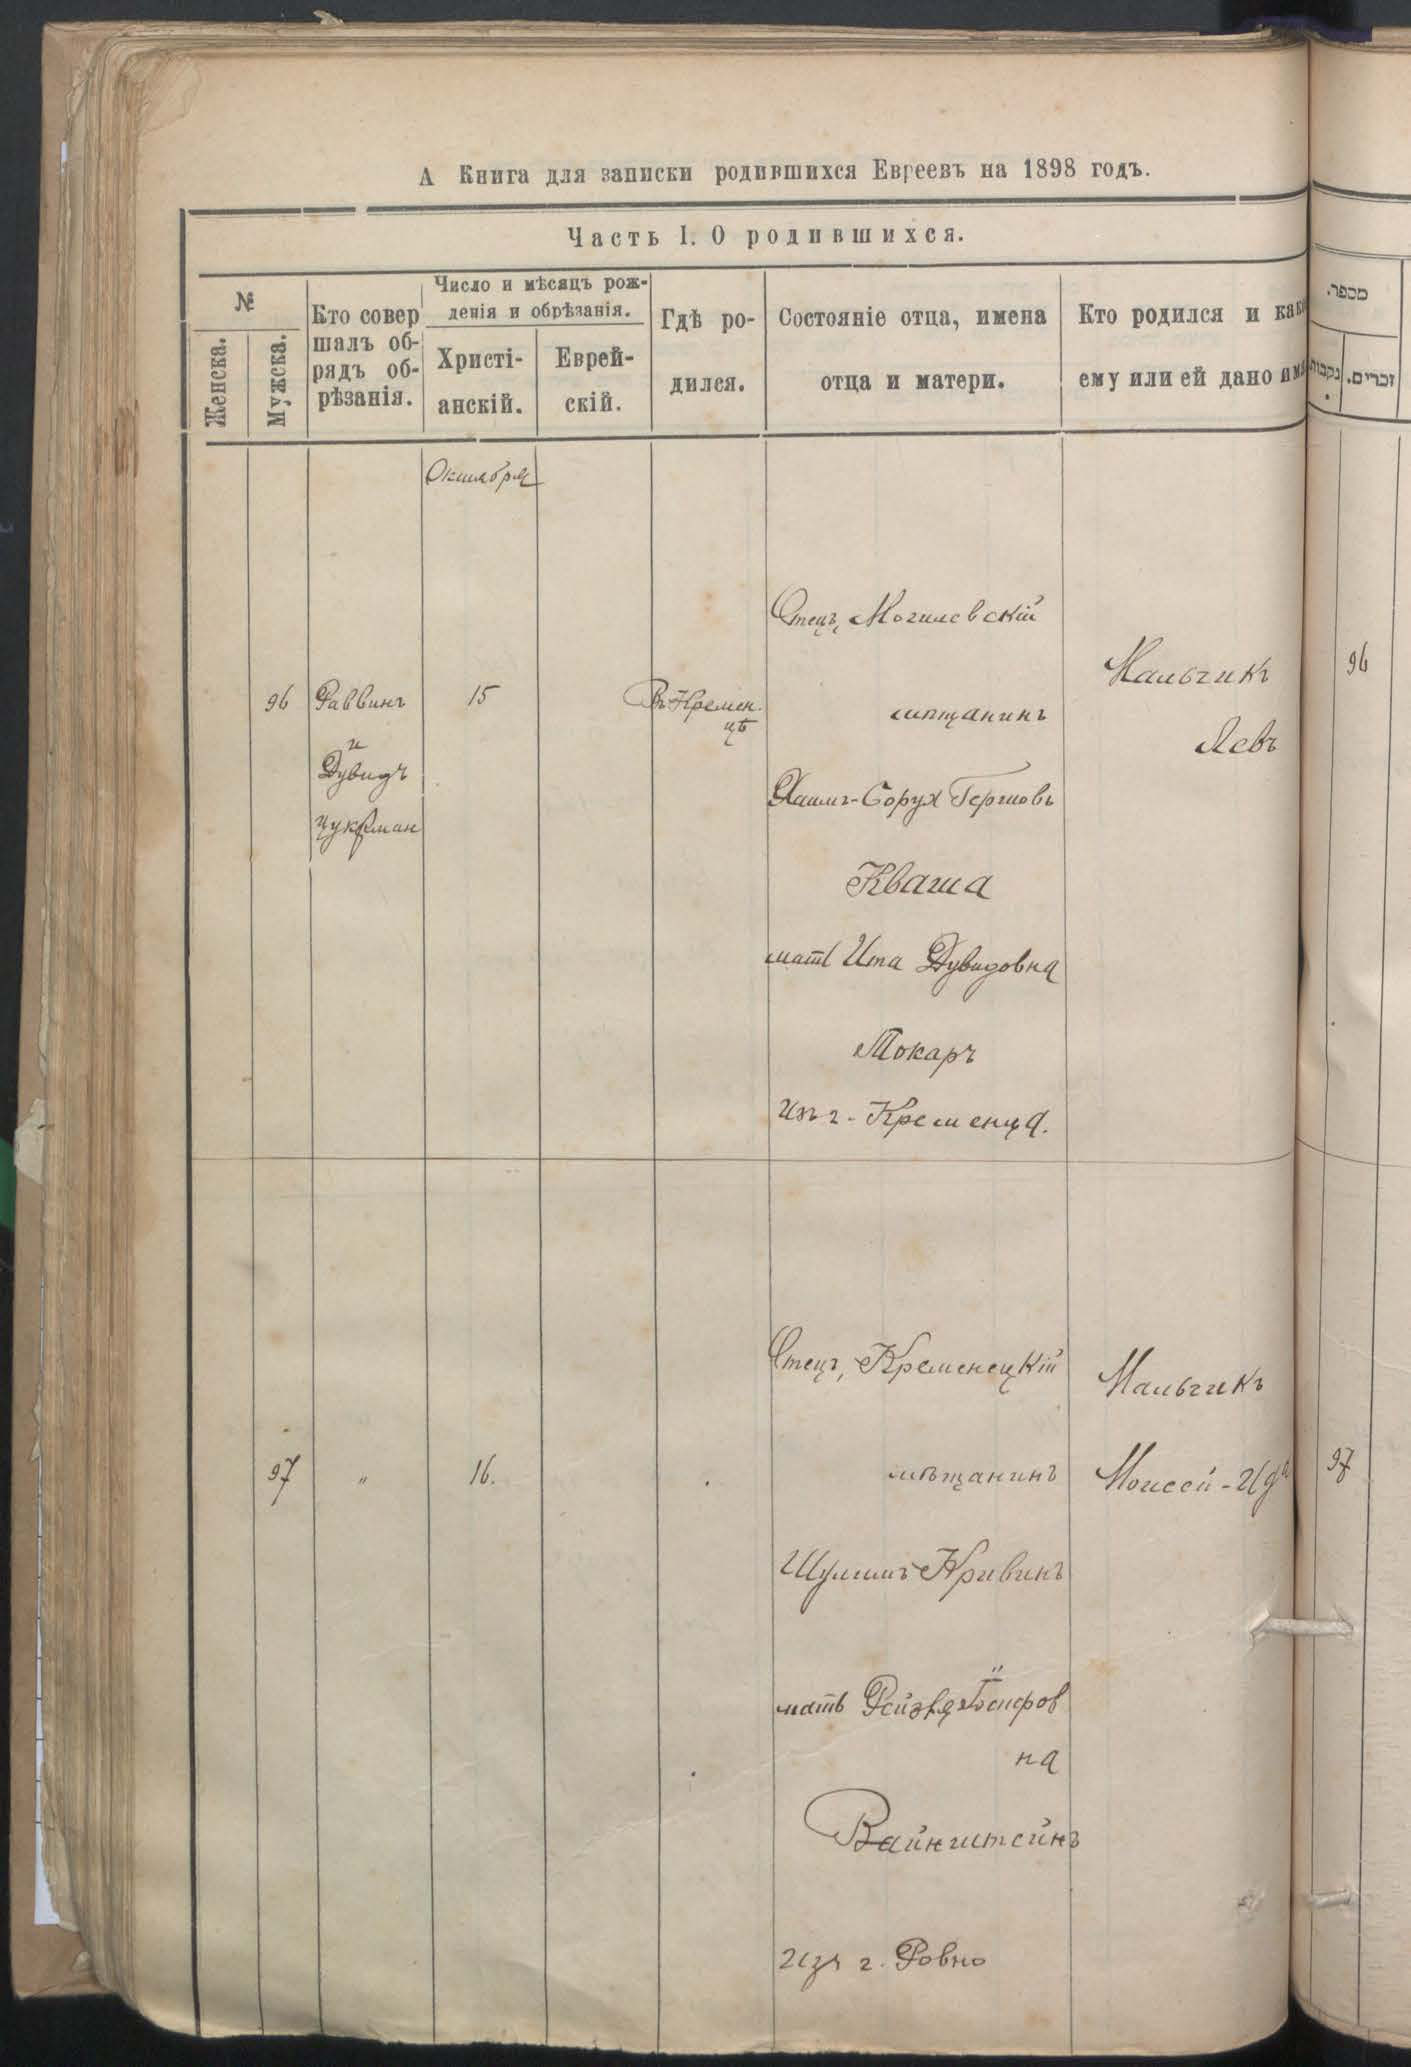 А Книга для записки родившихся Евреевъ на 1898 годъ.
Часть I. О родившихся.
№
Женска.
Мужска.
Кто совер
шалъ об-
рядъ об-
рѣзанія.
Число и мѣсяцъ рож-
денія и обрѣзанія.
Христі-
анскій.
Еврей-
скій.
Гдѣ ро-
дился.
Состояніе отца, имена
отца и матери.
Кто родился и како
ему или ей дано имя
מספר.
נקבות
זכרים.
Октября
96
Раввинъ
и
Дувидъ
Цукерман
15
Въ Кремен-
цѣ
Отецъ, Могилевскій
мѣщанинъ
Хаимъ-Борух Гершовъ
Кваша
мать Ита Дувидовна
Токаръ
изъ г. Кременца.
Мальчикъ
Левъ
96
97
"
16.
Отецъ, Кременецкій
мѣщанинъ
Шулимъ Кривинъ
мать Рейзя
на
Вайнштейнъ
изъ г. Ровно
Мальчикъ
Моисей-
97